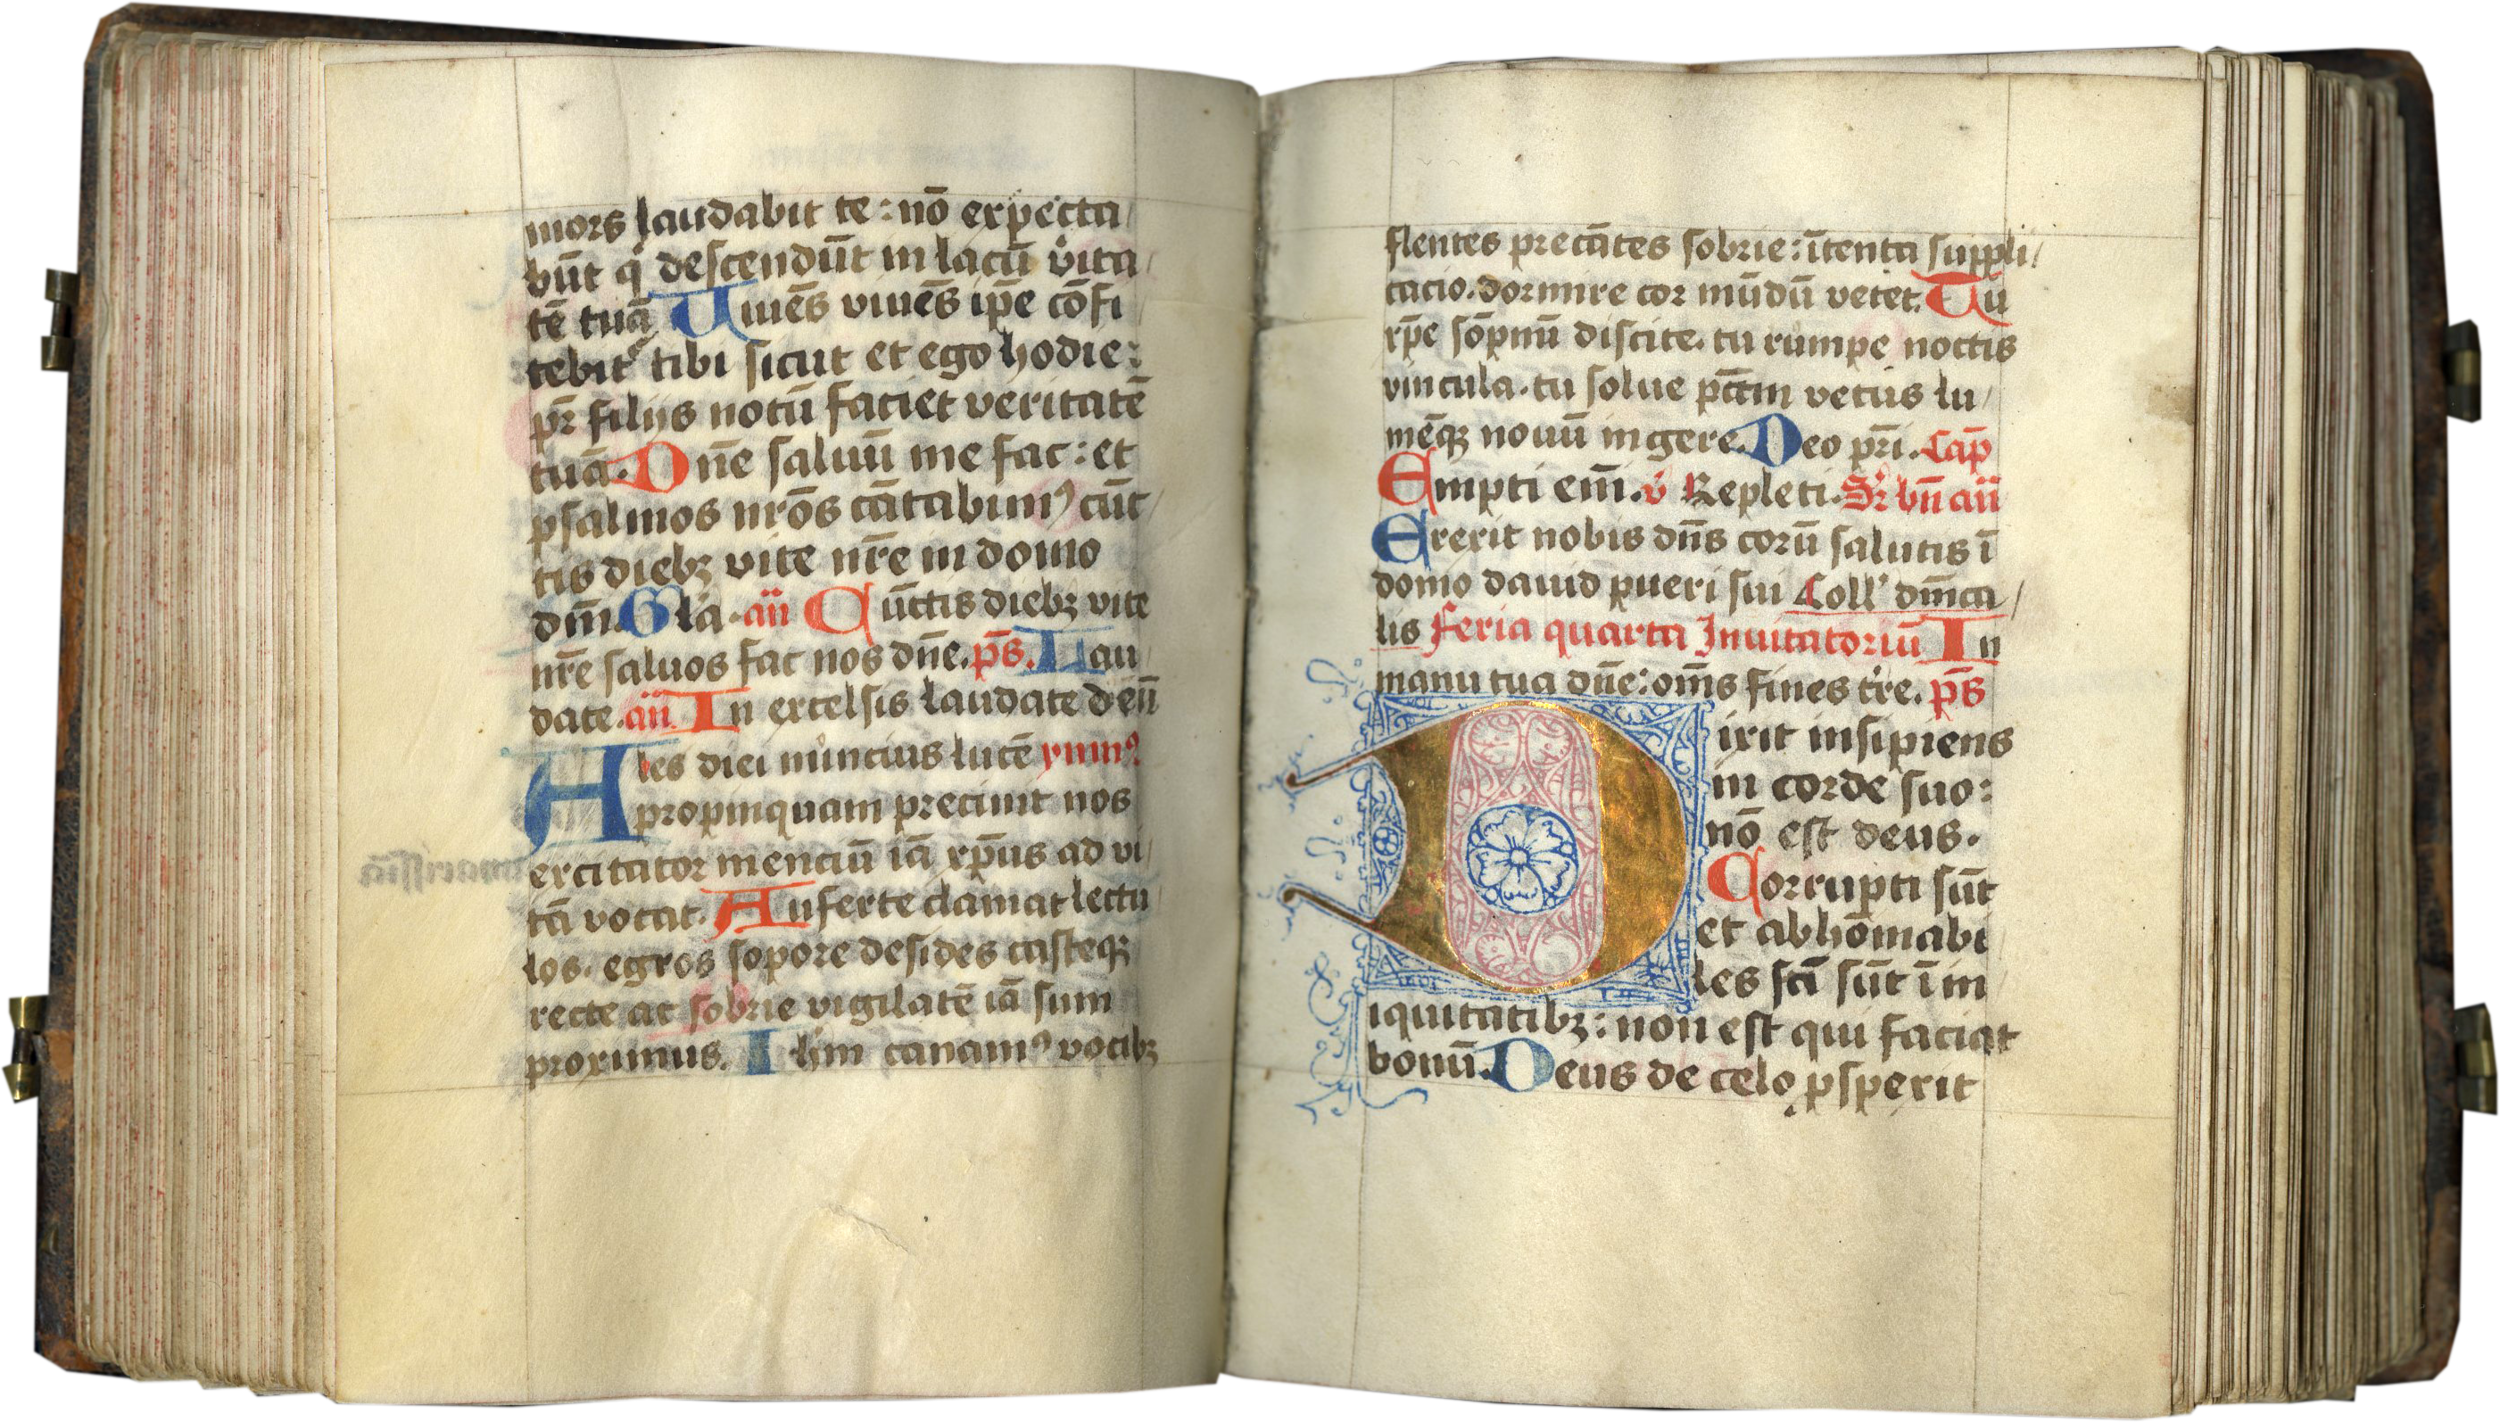 mors laudabit te: nō expecta
būt q' descendūt in lacū vita
tē tuā. Uiuēs viuēs ip̄e cōfi
tebit' tibi sicut et ego hodie:
pr̄ filijs notū faciet veritatē
tuā. Dn̄e saluū me fac: et
psalmos nr̄os cātabim' cūc
tis dieb3 vite nr̄e in domo
dn̄i. Gl'a. añ Cūctis dieb3 vite
nr̄e saluos fac nos dn̄e. ps̄. Lau
date. añ In excelsis laudate deū
Ales diei nūncius lucē ymn'
apropinquam precinit nos
excitator menciū iā xp̄us ad vi
tā vocat. Auferte clamat lectu
los. egros sopore desides casteq3
recte ac sobrie vigilatē iā sum
proximus. Ih̄m canam' vocib3
flentes precātes sobrie: ītenta suppli
cacio. dormire cor mūdū vetet. Tu
xp̄e sōpnū discite. tu rumpe noctis
vincula. tu solue pctm̄ vetus lu
mēq3 nouū ingere. Deo pr̄i. Cap̄
Empti em̄. v̓ Repleti. Sr̄ bn̄ añ
Erexit nobis dn̄s cornū salutis ī
domo dauid pueri sui Coll' dn̄ica
lis Feria quarta Inuitatoriū In
manu tua dn̄e: om̄s fines tr̄e. ps̄
Dixit insipiens
in corde suo:
nō est deus.
Corrupti sūt
et abhominabi
les fc̄i sūt ī in
iquitatib3: non est qui faciat
bonū. Deus de celo ꝓsperit